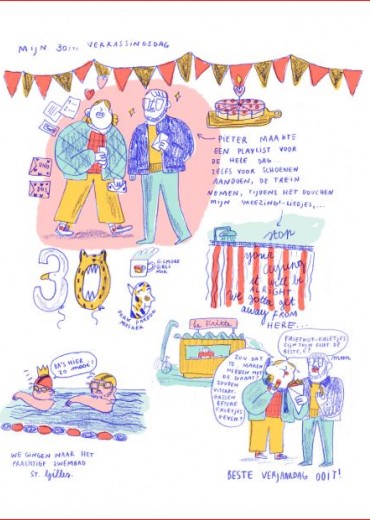 MIJN 30STE VERRASSINGSDAG
PIETER MAAKTE
EEN PLAYLIST VOOR
DE HELE DAG
ZELFS VOOR SCHOENEN
AANDOEN, DE TREIN
NEMEN, TIJDENS HET DOUCHEN
MIJN
LIEDJES,...
stop
your
crying
it will be
ALRIGHT
we gotta get
away FROM
HERE...
30
GILMORE
GIRLS
MOK
la Frite
ZOU DAT
TE MAKEN
HEBBEN MET
FRIETKOT-KOELTJES
ZIJN TOCH ECHT DE
BESTE, É
mmm
'T IS HIER
ZO MOOI!
WE GINGEN NAAR HET
PRACHTIGE ZWEMBAD
ST. Gilles.
BESTE VERJAARDAG OOIT!